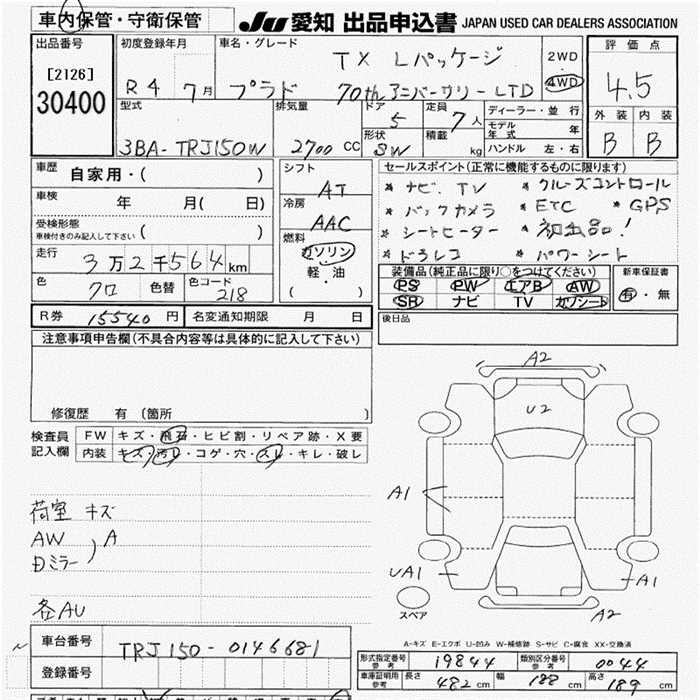 車内保管・守衛保管
JU 愛知 出品申込書 JAPAN USED CAR DEALERS ASSOCIATION
出品番号
[2126]
30400
初度登録年月
R4 7月
車名・グレード
TX Lパッケージ
プラド 70th アニバーサリーLTD
2WD
4WD
評価点
4.5
外装 内装
B B
型式
3BA-TRJ150W
排気量
2700 CC
ドア
5
形状
SW
定員
7人
積載 kg
ディーラー・並行
モデル年式 年
ハンドル 左・右
車歴 自家用・( )
車検 年 月( 日)
受検形態
車検付きのみ記入して下さい ( )
走行 3万2千564km
色 クロ 色替 色コード 218
シフト
AT
冷房
AAC
燃料
ガソリン
軽・油
( )
セールスポイント(正常に機能するものに限ります)
* ナビ、TV * クルーズコントロール
* バックカメラ * ETC * GPS
* シートヒーター * 初出品!
* ドラレコ * パワーシート
装備品(純正品に限り○をつけてください)
PS PW エアB AW
SR ナビ TV カワシート
新車保証書
有・無
R券 15540円 名変通知期限 月 日
後日品
注意事項申告欄(不具合内容等は具体的に記入して下さい)
修復歴 有(箇所 )
検査員記入欄
FW キズ・飛石・ヒビ割・リペア跡・X要
内装 キズ・汚レ・コゲ・穴・スレ・キレ・破レ
荷室 キズ
AW
Dミラー ) A
各AU
A2
U2
A1
UA1
A1
A2
スペア
A-キズ E-エクボ U-凹み W-補修跡 S-サビ C-腐食 XX-交換済
車台番号 TRJ150-0146681
登録番号
形式指定番号参考 19844 類別区分番号参考 0044
車庫証明用参考 長さ 482cm 幅 188cm 高さ 189cm